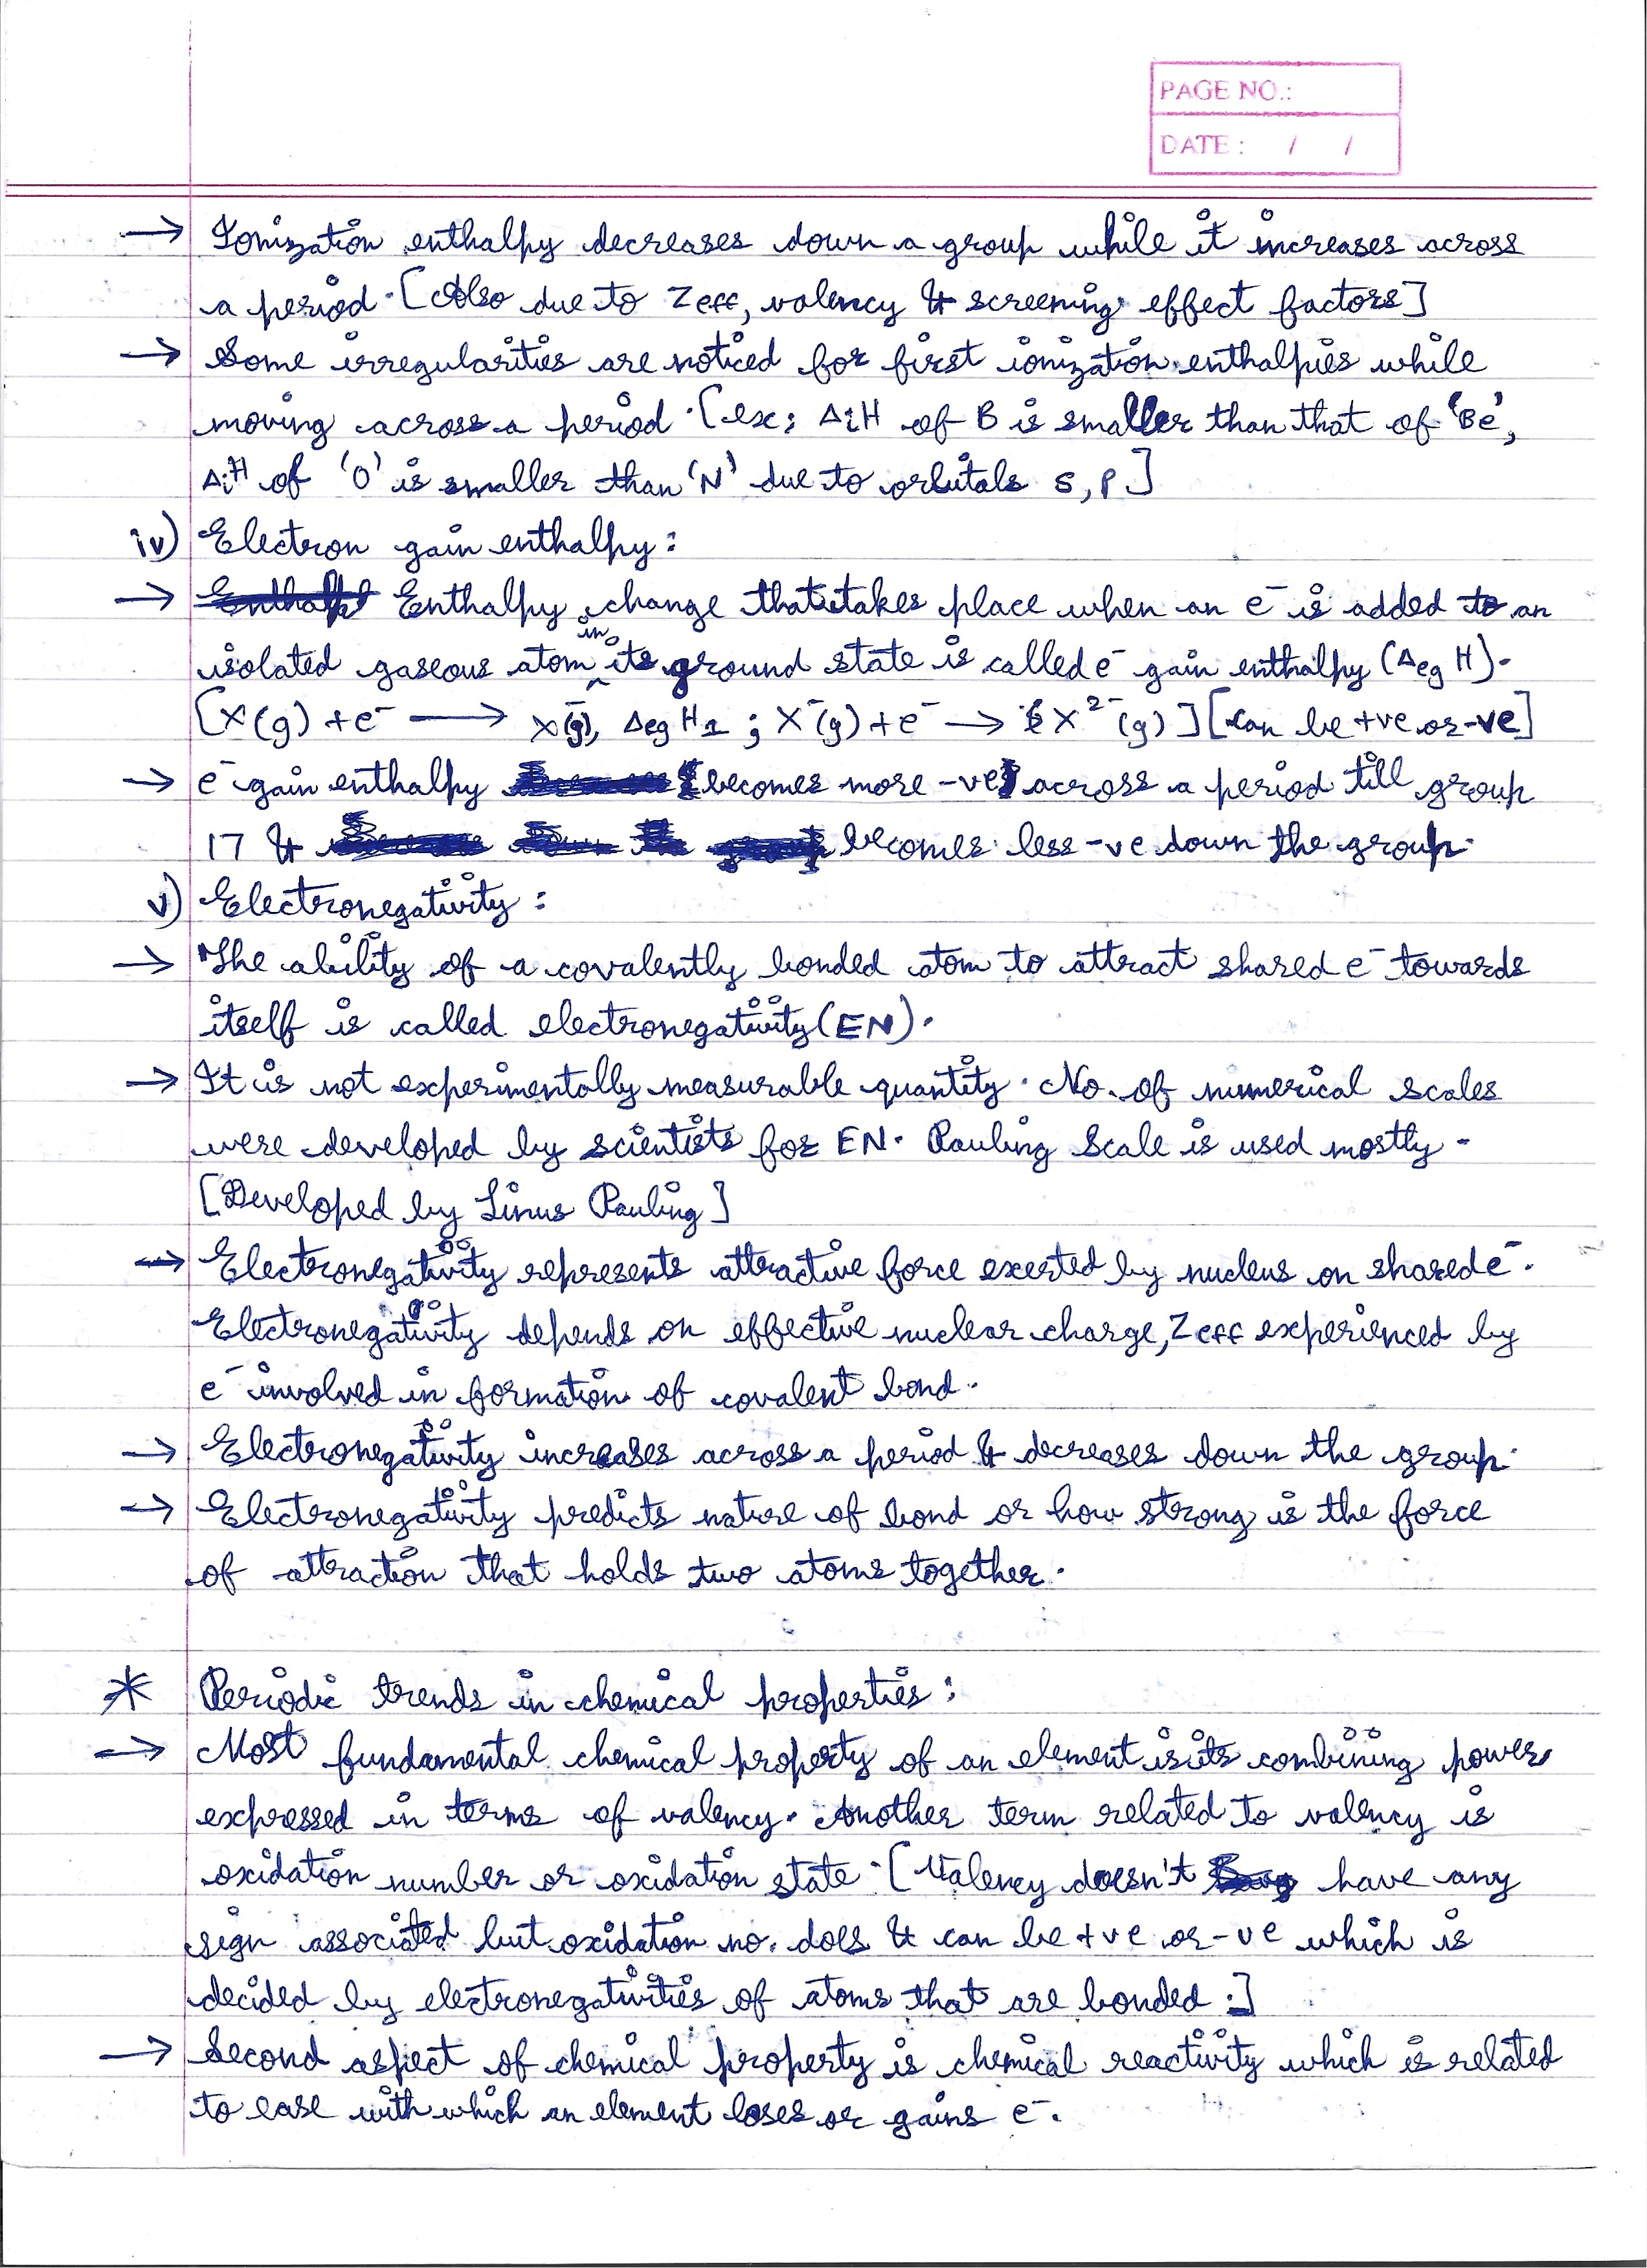 PAGE NO.:
DATE : / /
→ Ionization enthalpy decreases down a group while it increases across
a period. [Also due to Zeff, valency & screening effect factors]
→ Some irregularities are noticed for first ionization enthalpies while
moving across a period. [ex: ΔiH of B is smaller than that of 'Be',
ΔiH of 'O' is smaller than 'N' due to orbitals s, p]
iv) Electron gain enthalpy:
→ Enthalpy change that takes place when an e⁻ is added to an
isolated gaseous atom in its ground state is called e⁻ gain enthalpy (ΔegH).
[X(g) + e⁻ → X⁻(g), ΔegH1 ; X⁻(g) + e⁻ → X²⁻(g)] [can be +ve or -ve]
→ e⁻ gain enthalpy [becomes more -ve] across a period till group
17 & becomes less -ve down the group.
v) Electronegativity:
→ The ability of a covalently bonded atom to attract shared e⁻ towards
itself is called electronegativity (EN).
→ It is not experimentally measurable quantity. No. of numerical scales
were developed by scientists for EN. Pauling Scale is used mostly.
[Developed by Linus Pauling]
→ Electronegativity represents attractive force exerted by nucleus on shared e⁻.
Electronegativity depends on effective nuclear charge, Zeff experienced by
e⁻ involved in formation of covalent bond.
→ Electronegativity increases across a period & decreases down the group.
→ Electronegativity predicts nature of bond or how strong is the force
of attraction that holds two atoms together.
* Periodic trends in chemical properties:
→ Most fundamental chemical property of an element is its combining power
expressed in terms of valency. Another term related to valency is
oxidation number or oxidation state. [Valency doesn't have any
sign associated but oxidation no. does & can be +ve or -ve which is
decided by electronegativities of atoms that are bonded.]
→ Second aspect of chemical property is chemical reactivity which is related
to ease with which an element loses or gains e⁻.